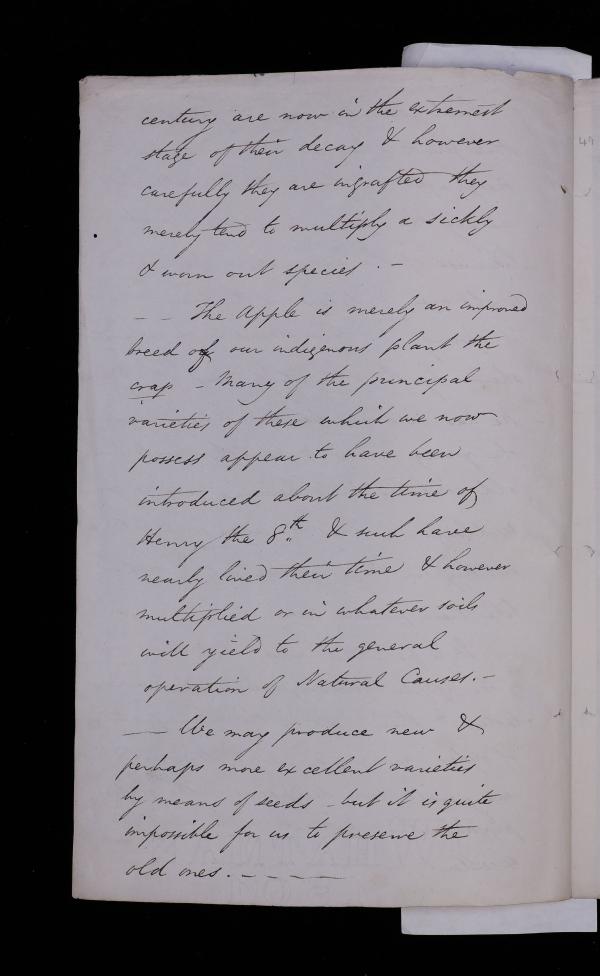 century are now in the extremest
stage of their decay & however
carefully they are ingrafted they
merely tend to multiply a sickly
& worn out species. -
- - The Apple is merely an improved
breed of our indigenous plant the
crap - Many of the principal
varieties of these which we now
possess appear to have been
introduced about the time of
Henry the 8th & such have
nearly lived their time & however
multiplied or in whatever soils
will yield to the general
operation of Natural Causes. -
— We may produce new &
perhaps more excellent varieties
by means of seeds - but it is quite
impossible for us to preserve the
old ones. - - - - -